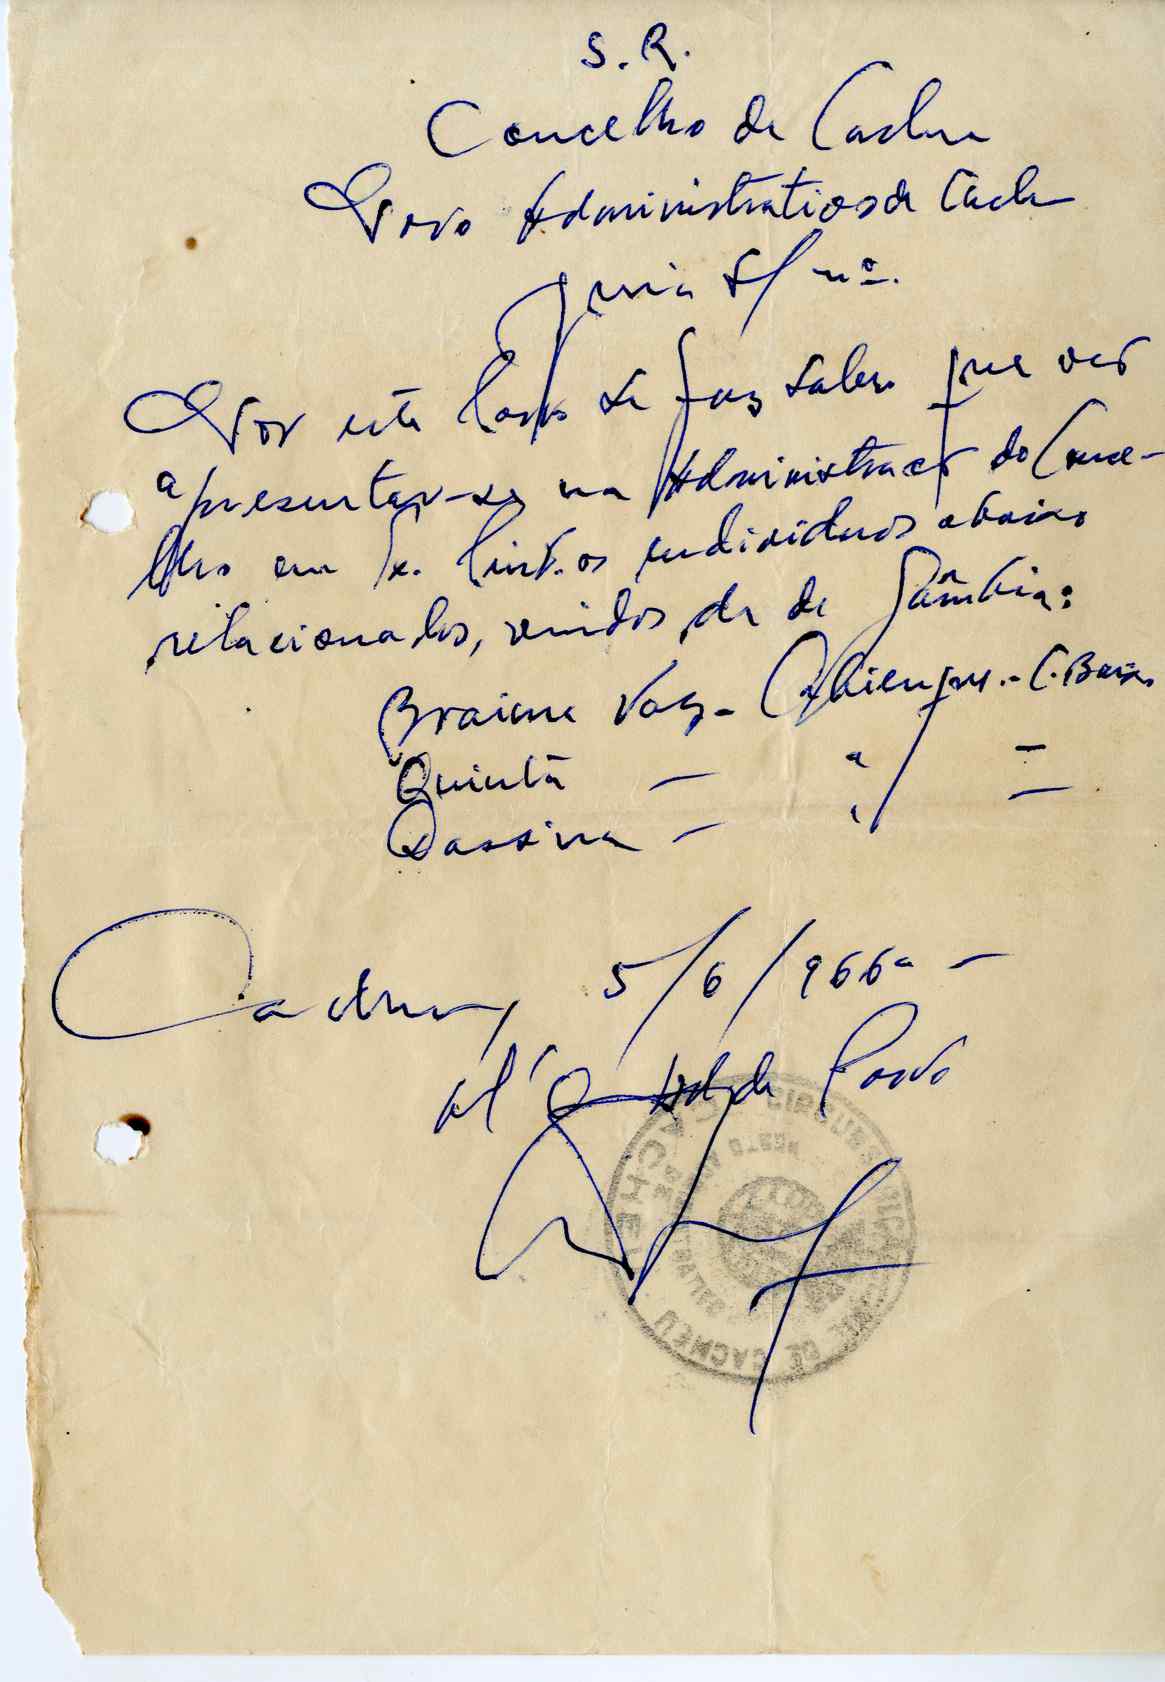 S. R.
Concelho de Cacheu
Posto Administrativo de Cacheu
Guia s/ nº.
Por este Posto se faz saber que vão
apresentar-se na Administração do Conce-
lho em T. Pinto os individuos abaixo
relacionados, vindos da de Gâmbia:
Braima Vaz - C. Baixo
Quintã — " —
Dassina — " —
Cacheu, 5/6/966 -
O Ad. de Posto
CIRCUNS
DE CACHEU